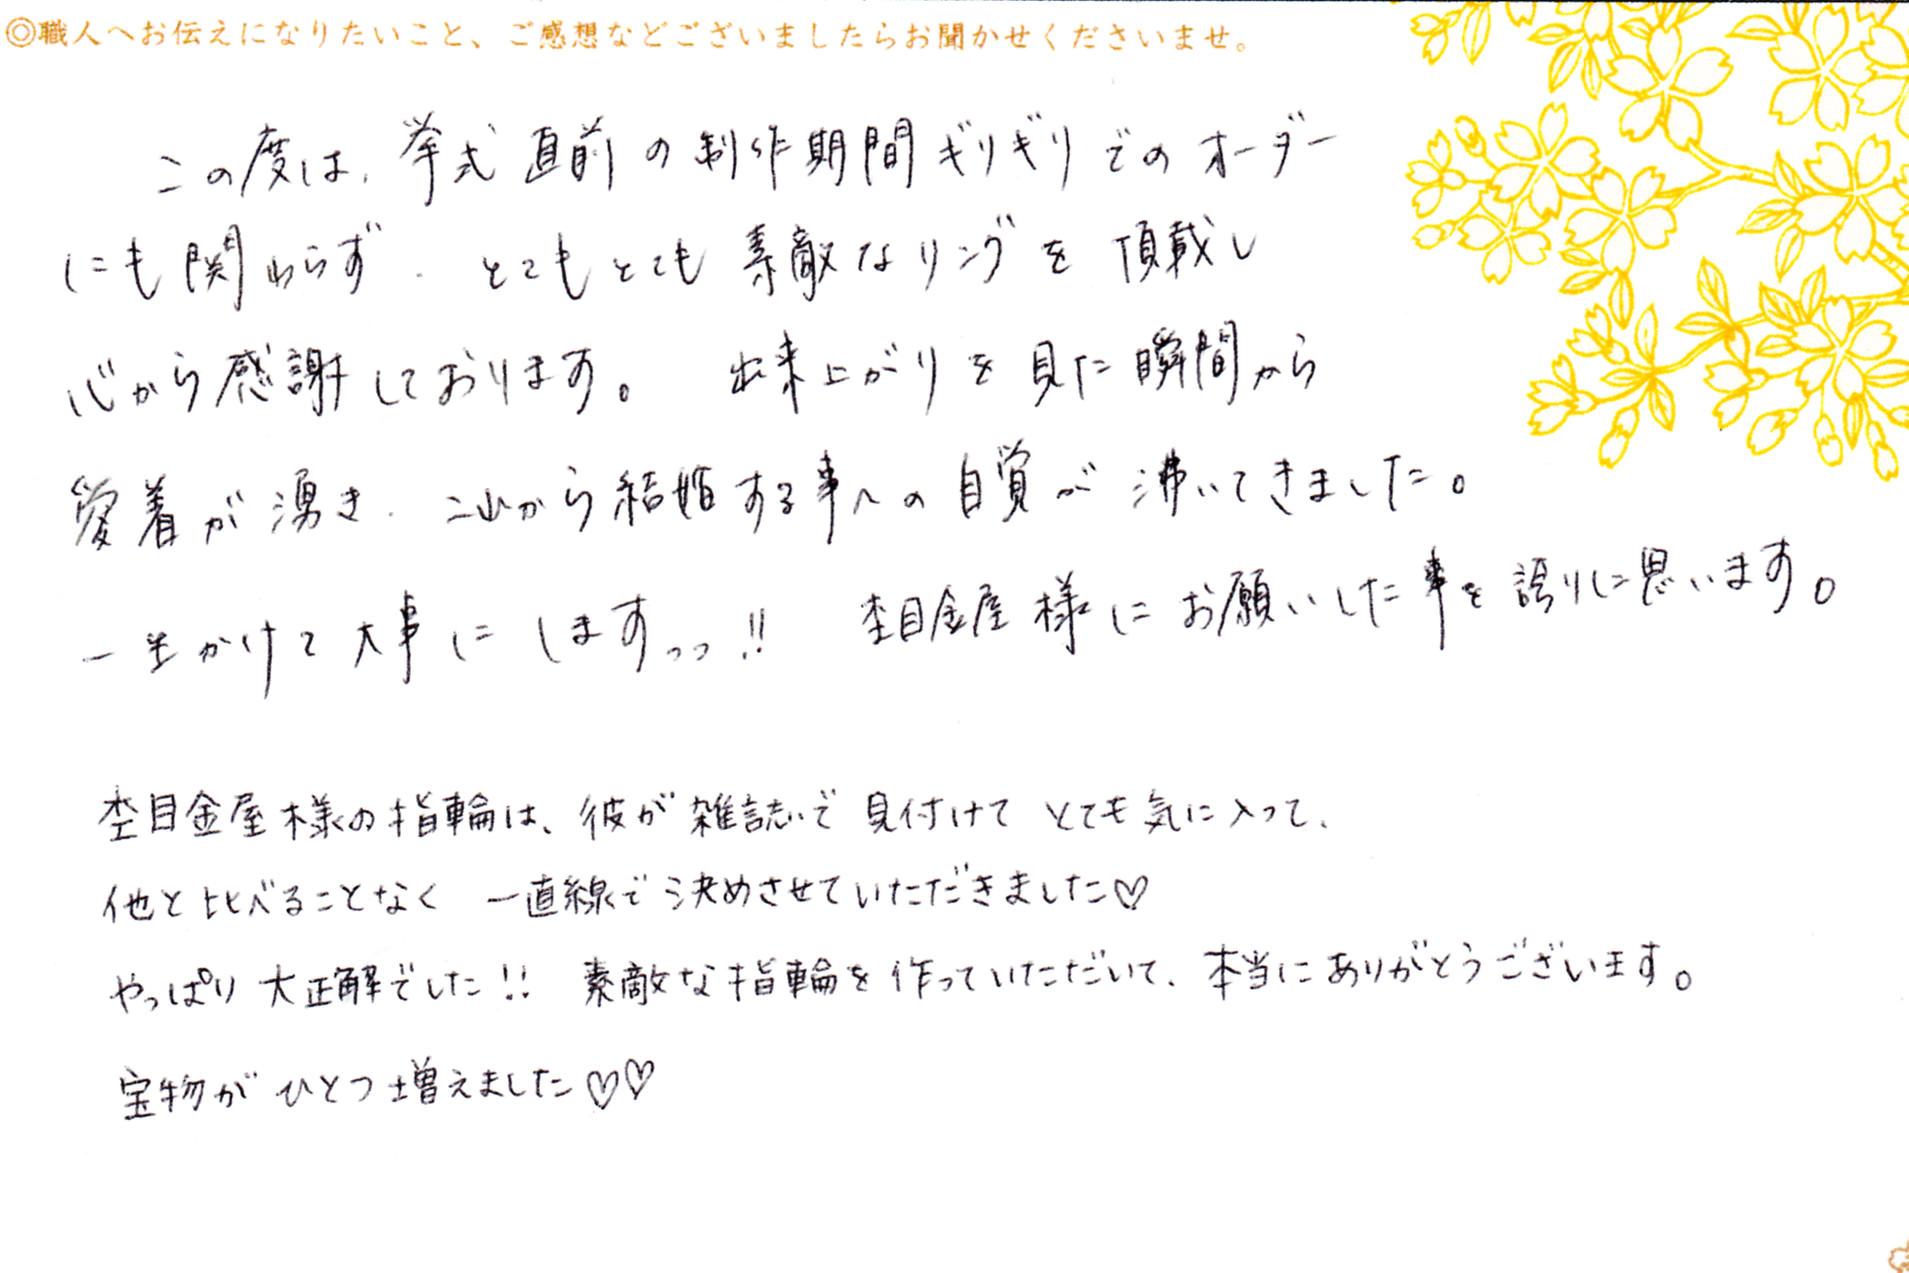 ◎職人へお伝えになりたいこと、ご感想などございましたらお聞かせくださいませ。
この度は、挙式直前の制作期間ギリギリでのオーダー
にも関わらず、とてもとても素敵なリングを頂戴し
心から感謝しております。 出来上がりを見た瞬間から
愛着が湧き、これから結婚する事への自覚が沸いてきました。
一生かけて大事にしますっっ!! 杢目金屋様にお願いした事を誇りに思います。
杢目金屋様の指輪は、彼が雑誌で見付けてとても気に入って、
他と比べることなく 一直線で決めさせていただきました♡
やっぱり大正解でした!! 素敵な指輪を作っていただいて、本当にありがとうございます。
宝物がひとつ増えました♡♡